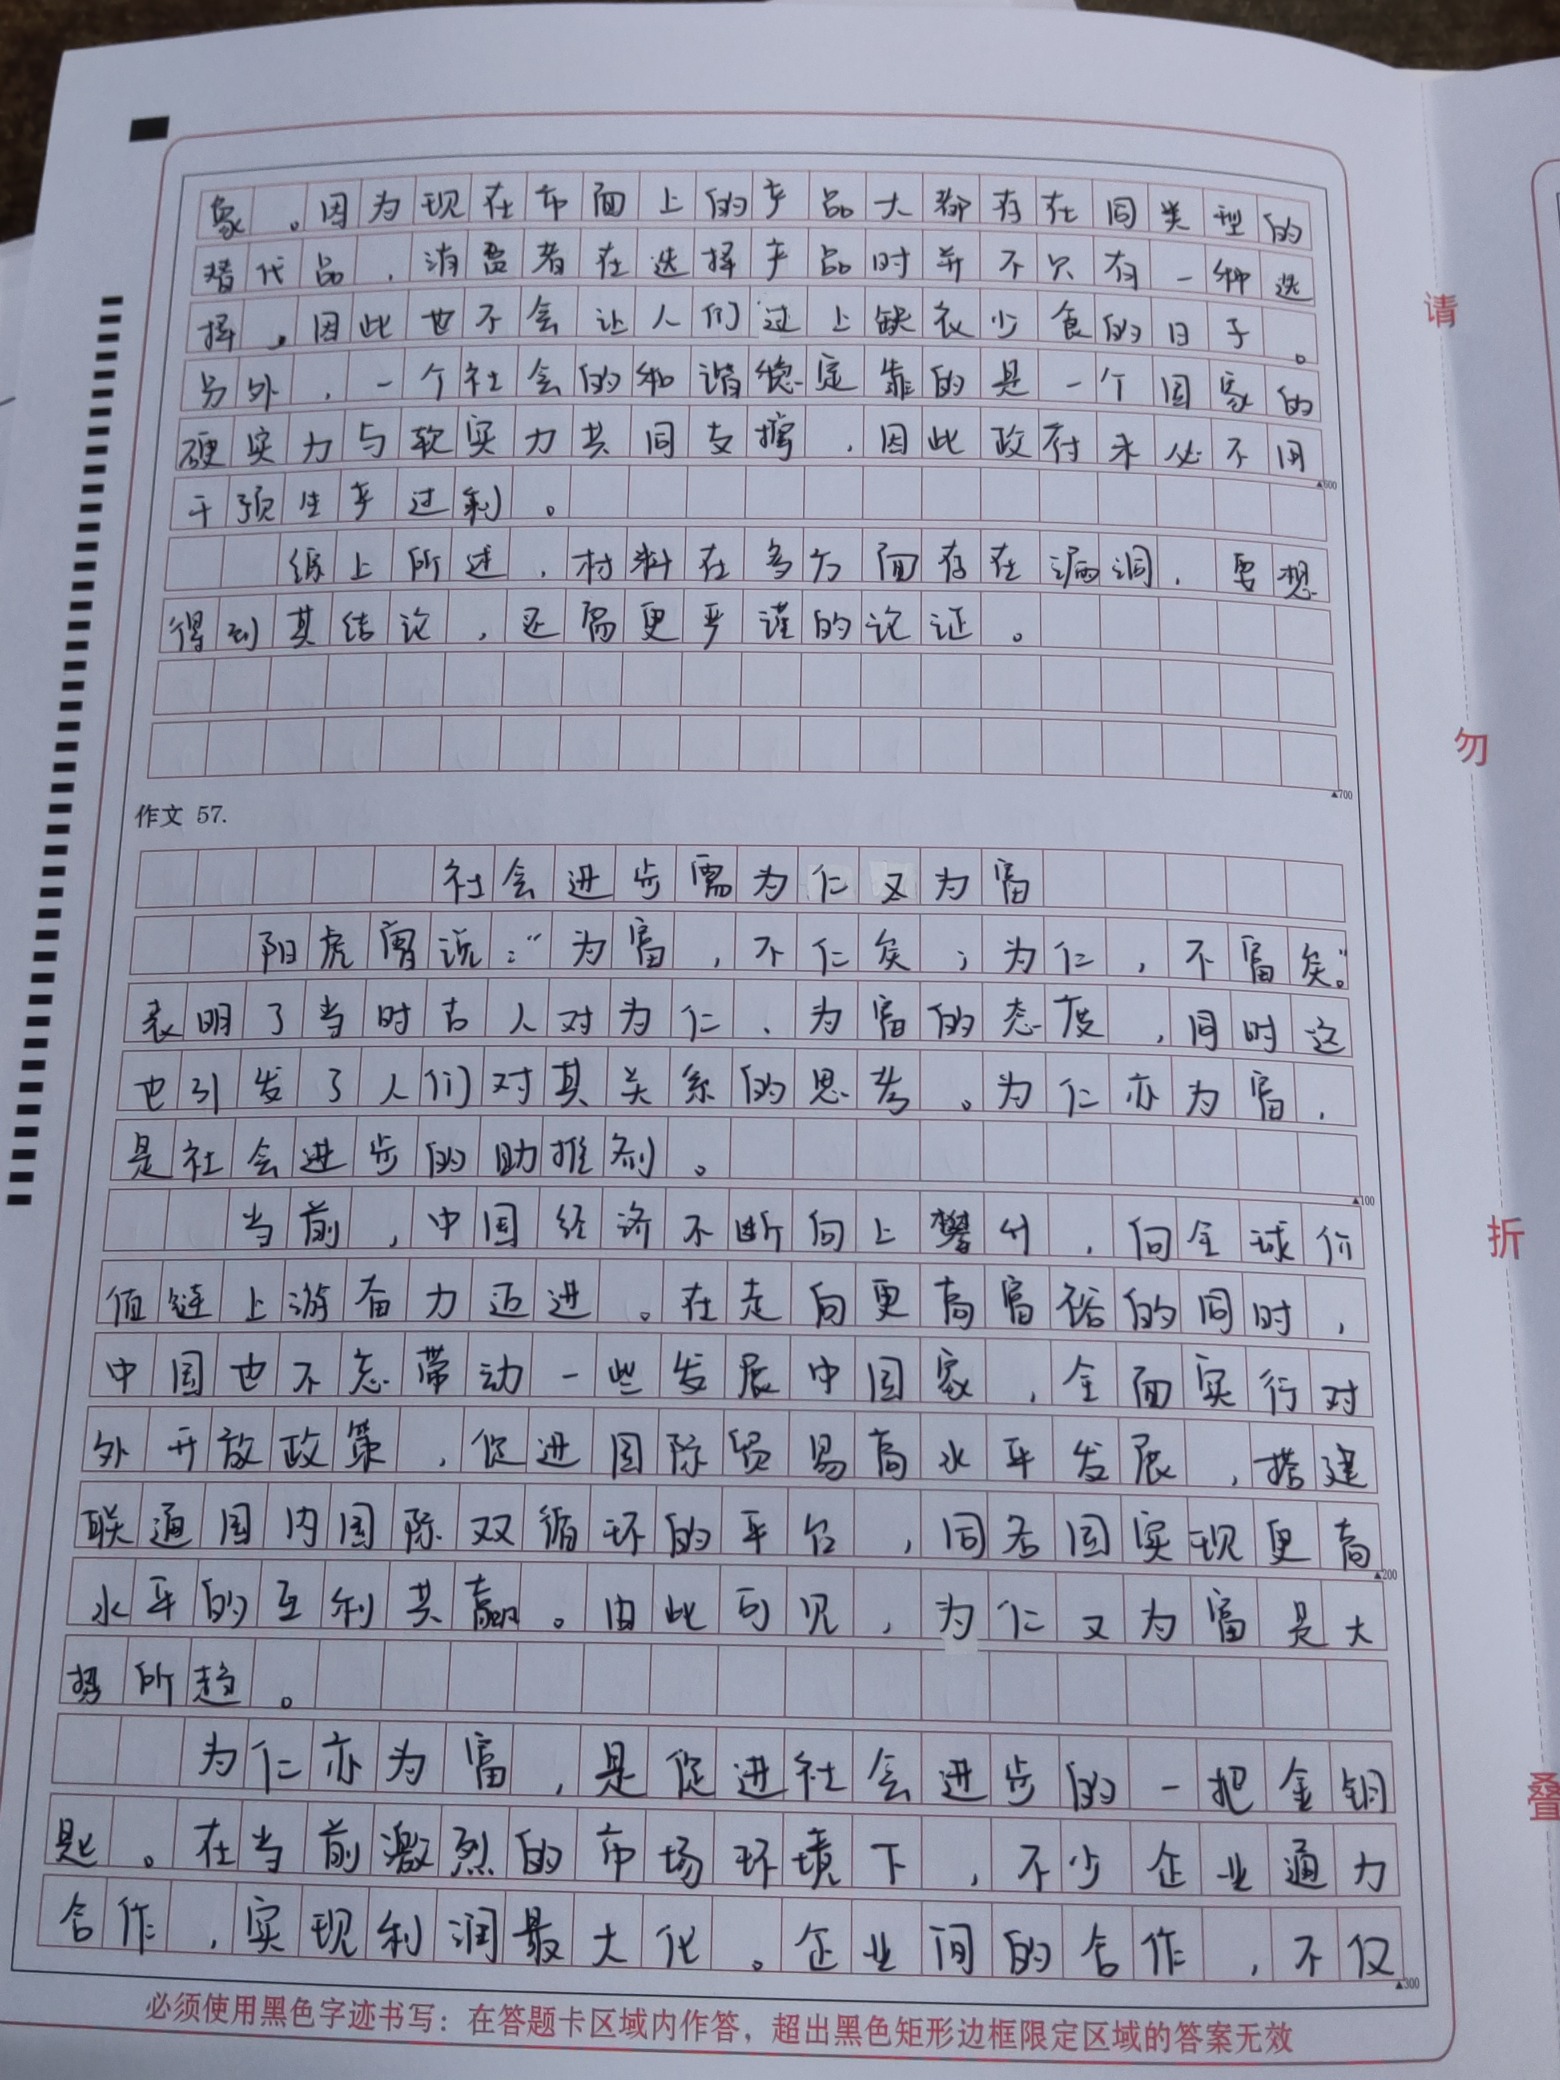 象。因为现在市面上的产品大都存在同类型的
替代品，消费者在选择产品时并不只有一种选
择。因此也不会让人们过上缺衣少食的日子。
另外，一个社会的和谐稳定靠的是一个国家的
硬实力与软实力共同支撑，因此政府未必不用
干预生产过剩。
▲600
综上所述，材料在多方面存在漏洞，要想
得到其结论，还需更严谨的论证。
▲700
作文 57.
社会进步需为仁又为富
阳虎曾说：“为富，不仁矣；为仁，不富矣。”
表明了当时古人对为仁、为富的态度，同时这
也引发了人们对其关系的思考。为仁亦为富，
是社会进步的助推剂。
▲100
当前，中国经济不断向上攀升，向全球价
值链上游奋力迈进。在走向更高富裕的同时，
中国也不忘带动一些发展中国家，全面实行对
外开放政策，促进国际贸易高水平发展，搭建
联通国内国际双循环的平台，同各国实现更高
▲200
水平的互利共赢。由此可见，为仁又为富是大
势所趋。
为仁亦为富，是促进社会进步的一把金钥
匙。在当前激烈的市场环境下，不少企业通力
合作，实现利润最大化。企业间的合作，不仅
▲300
必须使用黑色字迹书写：在答题卡区域内作答，超出黑色矩形边框限定区域的答案无效
请
勿
折
叠